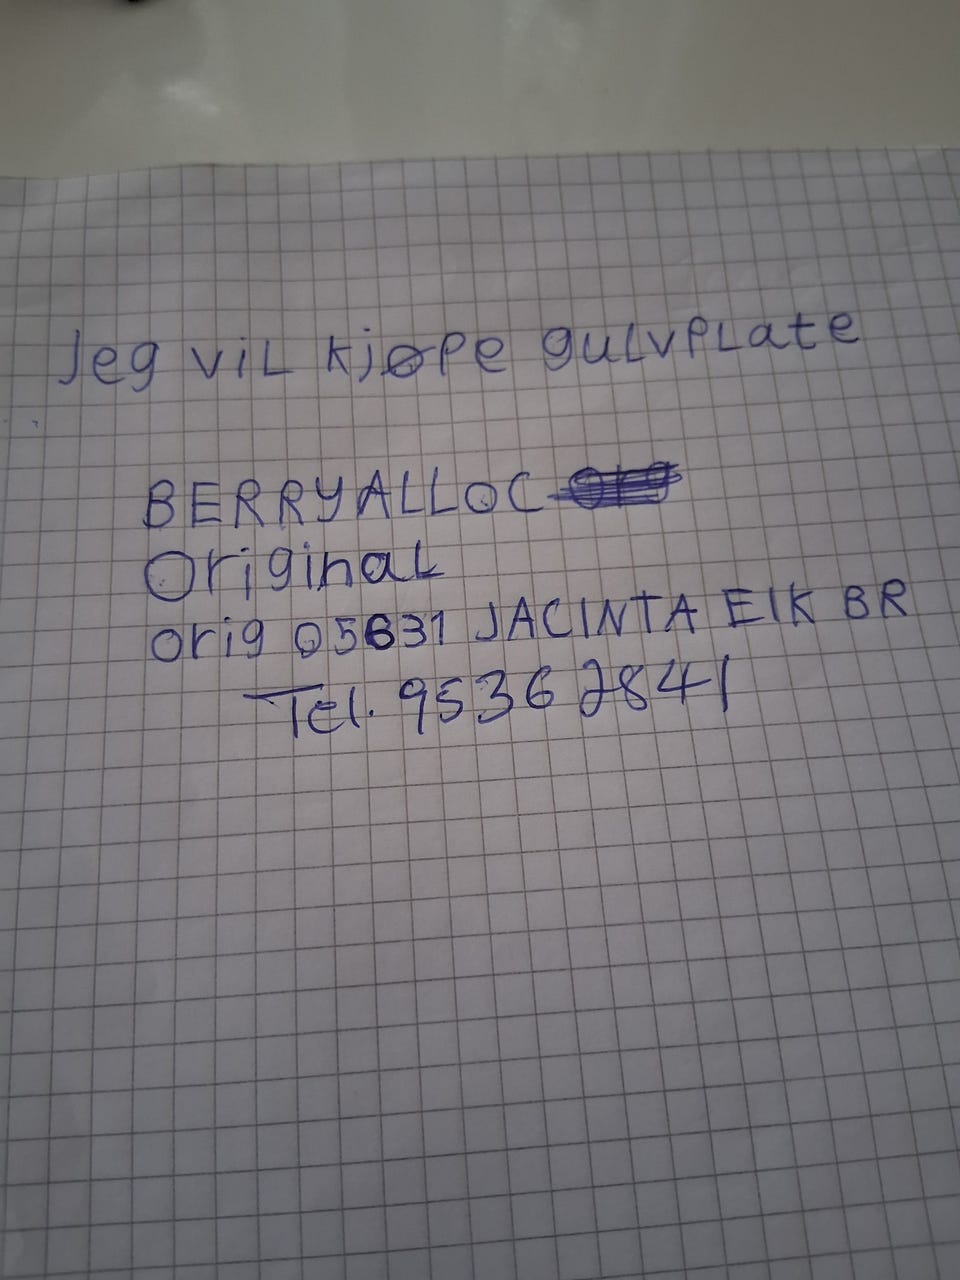 Jeg vil kjøpe gulvplate
BERRYALLOC
Original
orig 05631 JACINTA EIK BR
Tel. 95362841